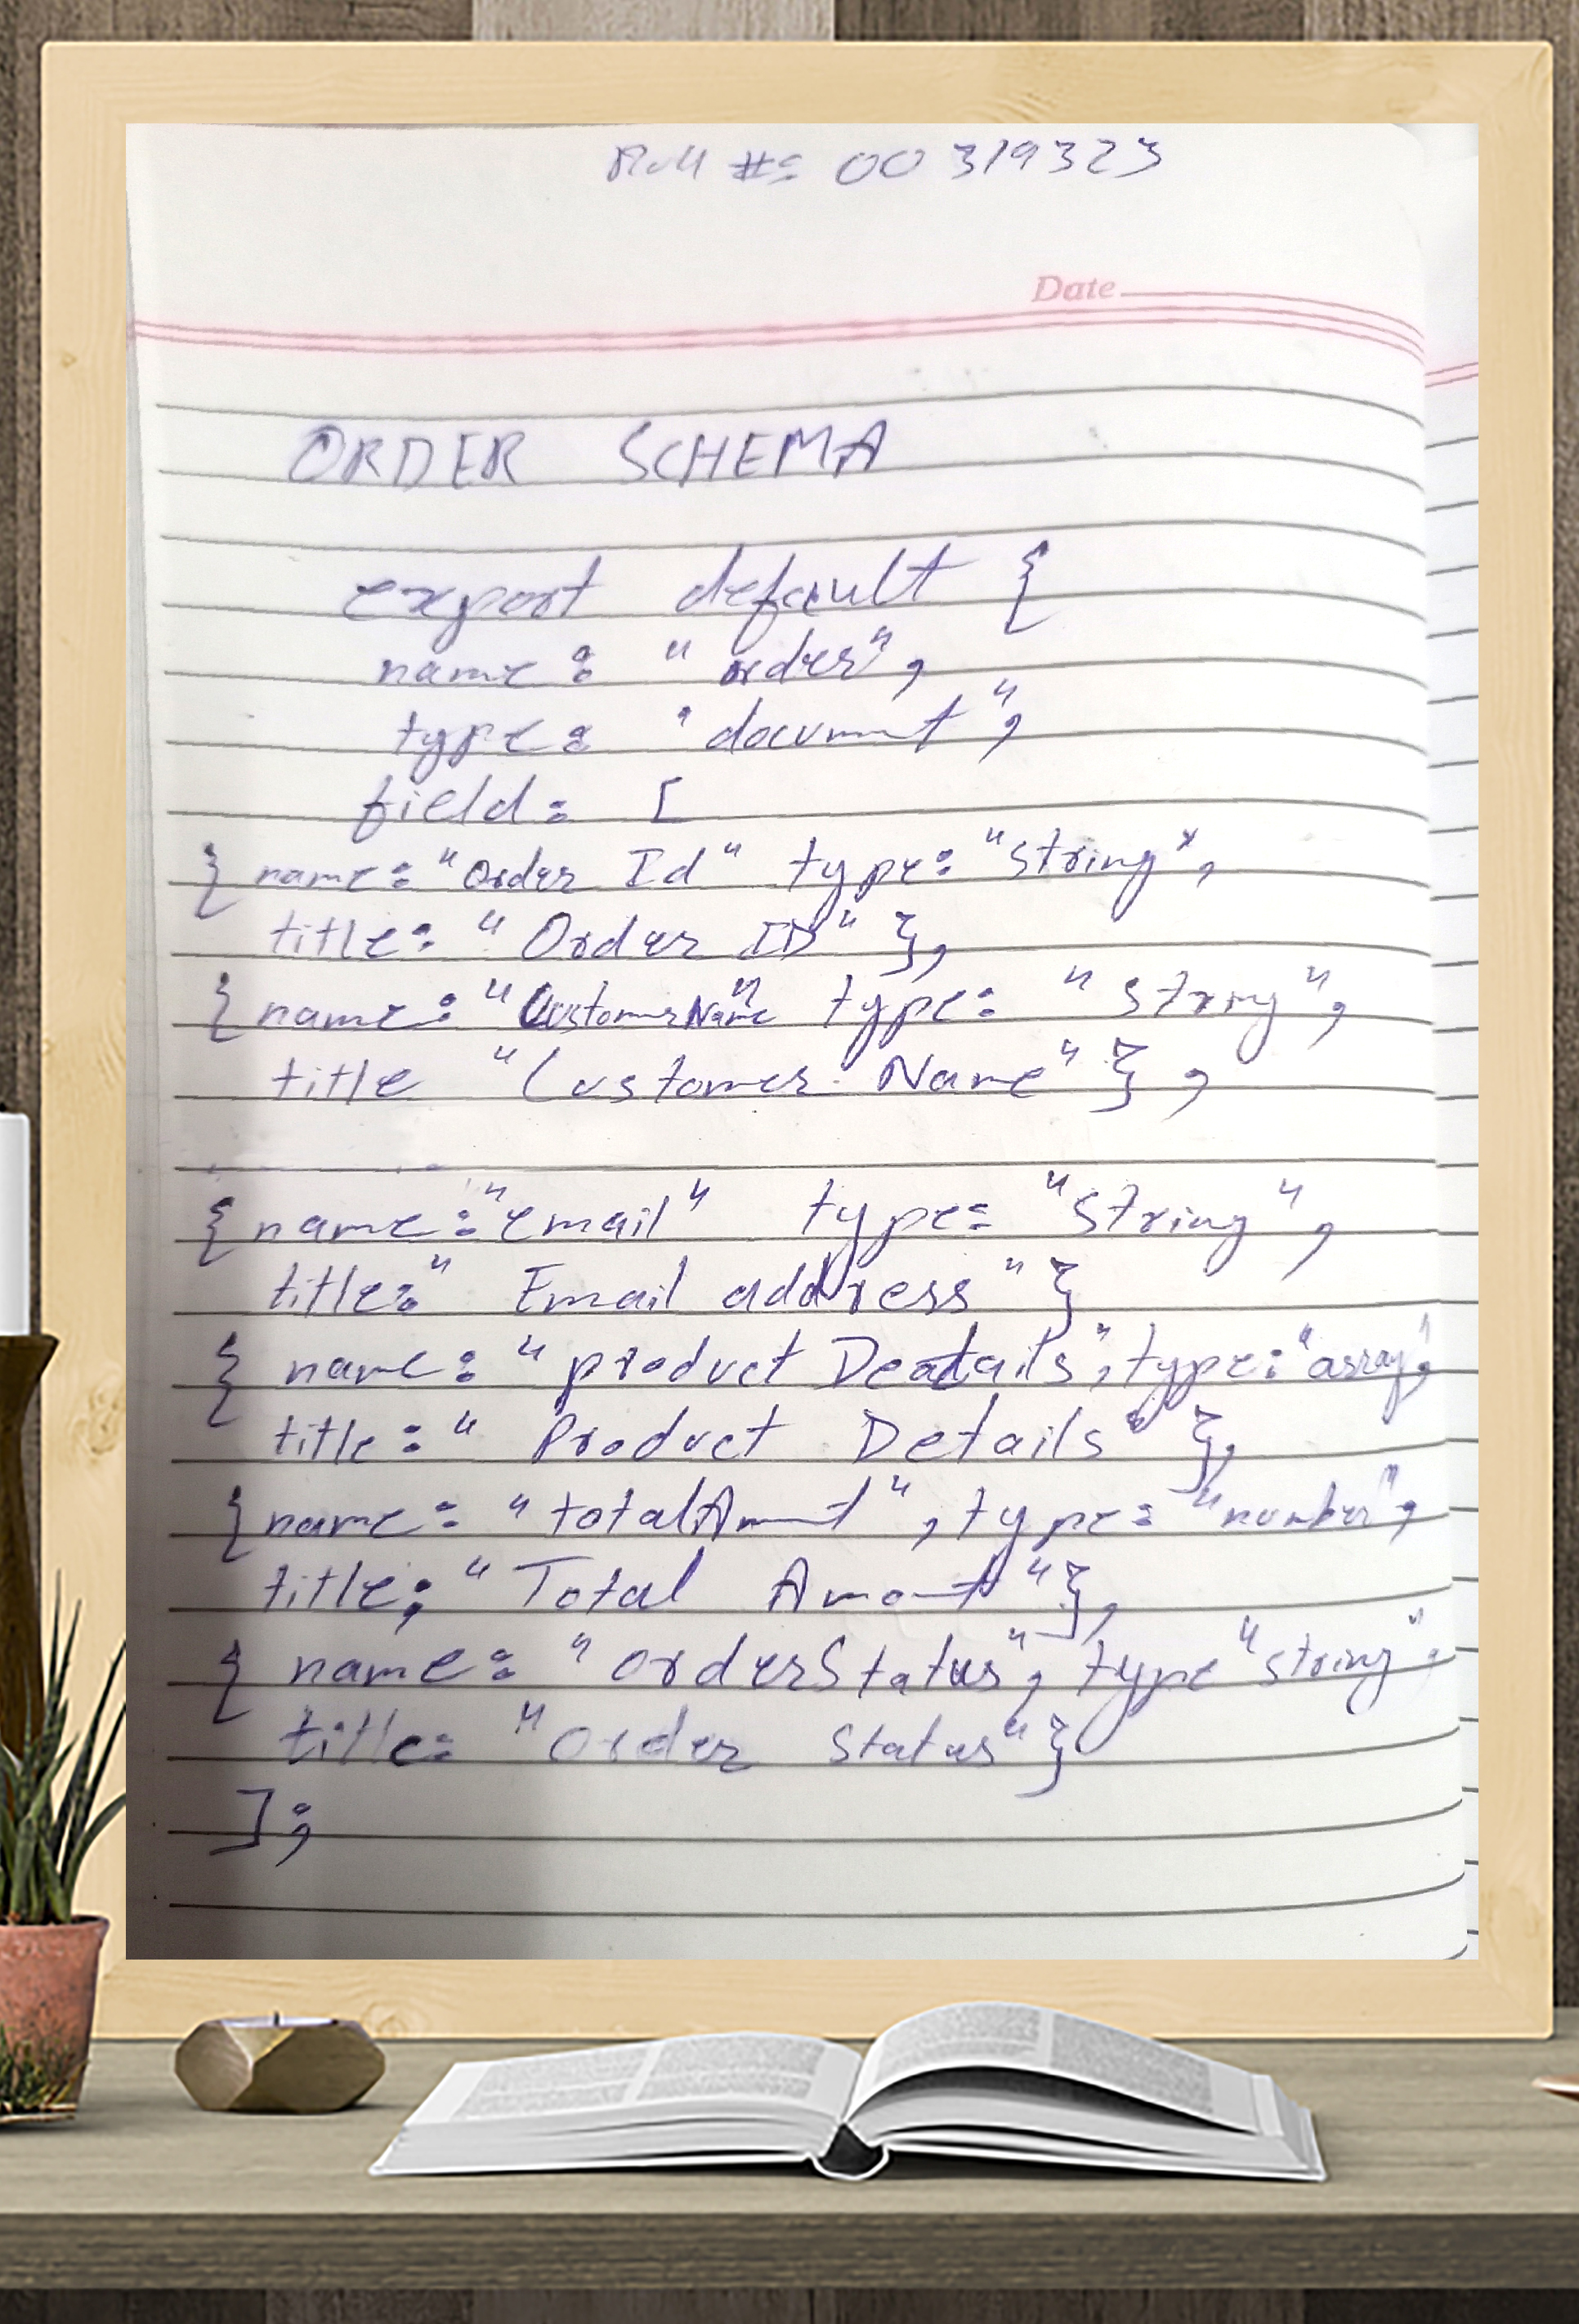 Roll #: 00319323
Date
ORDER SCHEMA
export default {
name: "order",
type: "document",
field: [
{ name: "Order Id" type: "string",
title: "Order ID" },
{ name: "CustomerName" type: "string",
title "Customer Name" },
{ name: "email" type: "string",
title: "Email address" }
{ name: "product Deatails", type: "array",
title: "Product Details" },
{ name: "totalAmnt", type: "number",
title; "Total Amont" },
{ name: "orderStatus", type "string",
title: "Order Status" }
];